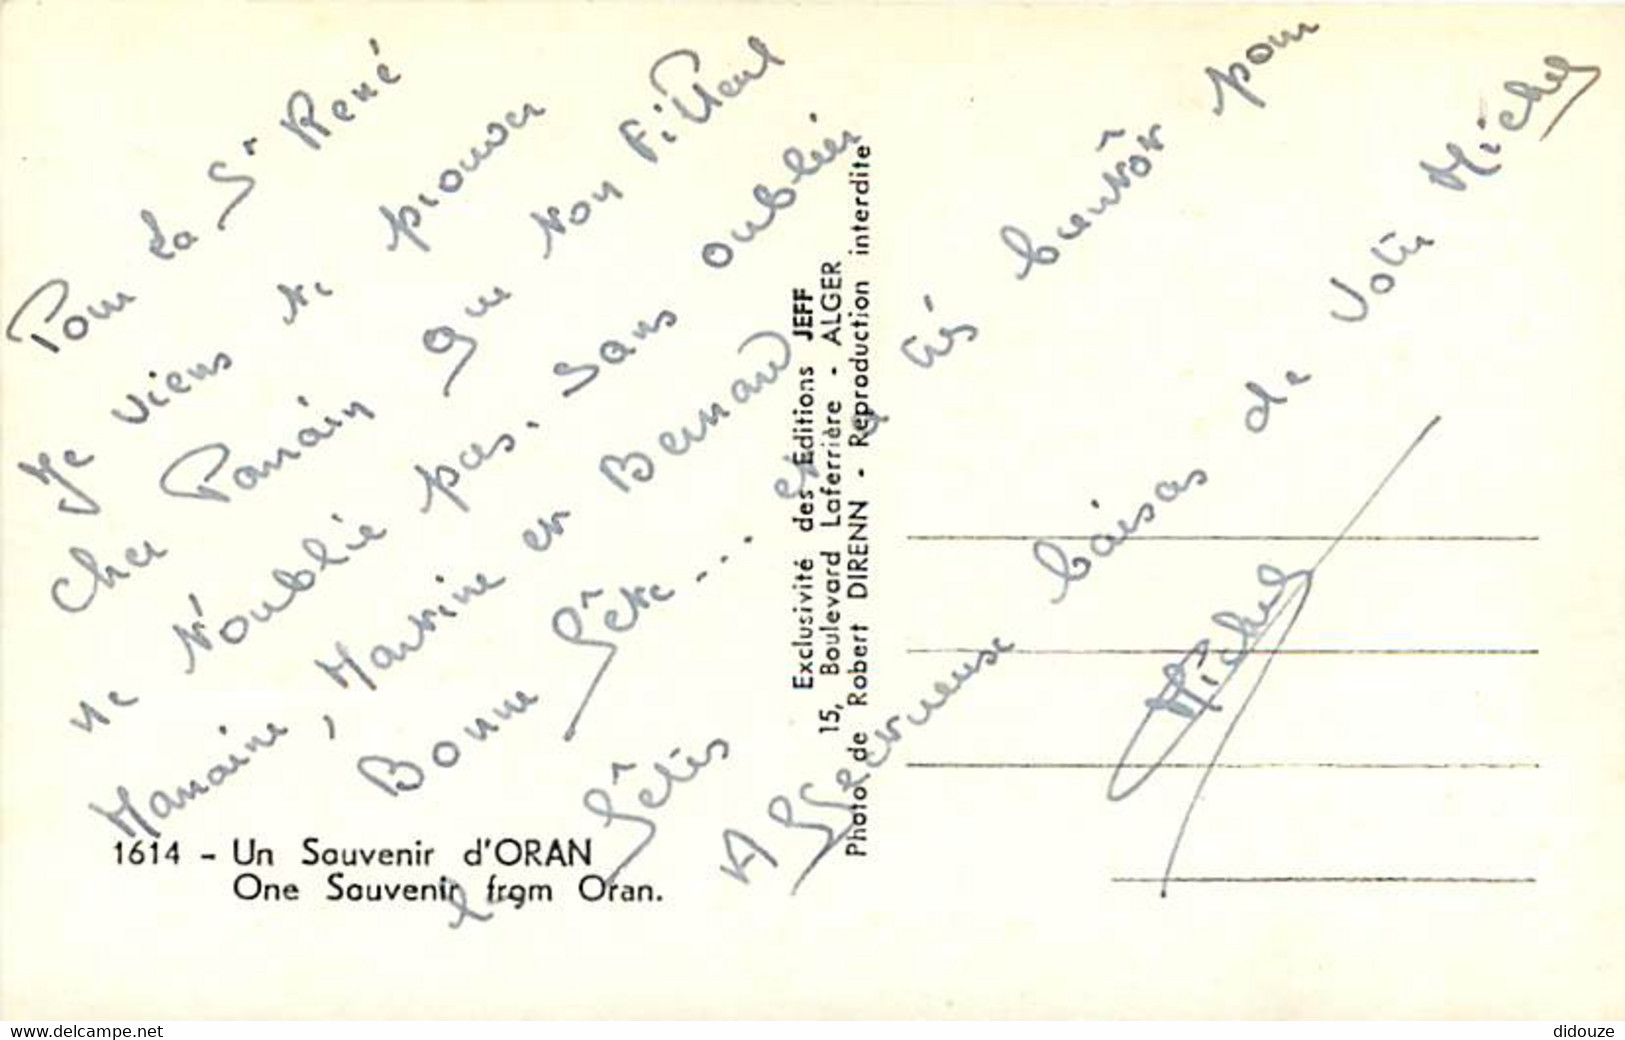 Pour La St René
Je viens te prouver
cher Parrain que ton Filleul
ne t'oublie pas. Sans oublier
Marraine, Martine et Bernard
Bonne fête... et a très bientôt pour
les fêtes
Affectueuse baisas de votre Michel
Michel
1614 - Un Souvenir d'ORAN
One Souvenir from Oran.
Exclusivité des Editions JEFF
15, Boulevard Laferrière - ALGER
Photo de Robert DIRENN - Reproduction interdite
www.delcampe.net
didouze